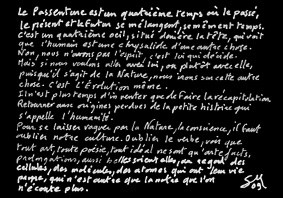 Le Passenture est un quatrième temps où le passé,
le présent et le futur se mélangent, se mêment temps.
C'est un quatrième oeil, situé derrière la tête, qui voit
que l'humain est une chrysalide d'une autre chose.
Non, nous n'avons pas l'esprit, c'est lui qui décide.
Mais si nous voulons aller avec lui, ou plutôt avec elle,
puisqu'il s'agit de la Nature, nous irons sur cette autre
chose. C'est l'Évolution même.
Il n'est plus temps d'inventer que de faire la récapitulation.
Retourner aux origines perdues de la petite histoire qui
s'appelle l'humanité.
Pour se laisser voguer par la Nature, la conscience, il faut
oublier notre culture. Oublier le verbe, vois que
tout art, toute poésie, tout idéal ne sont qu'artefacts,
prolongations, aussi belles soient-elles, au regard des
cellules, des molécules, des atomes qui ont leur vie
propre, qui n'est autre que la notre que l'on
n'écoute plus.
SM
09